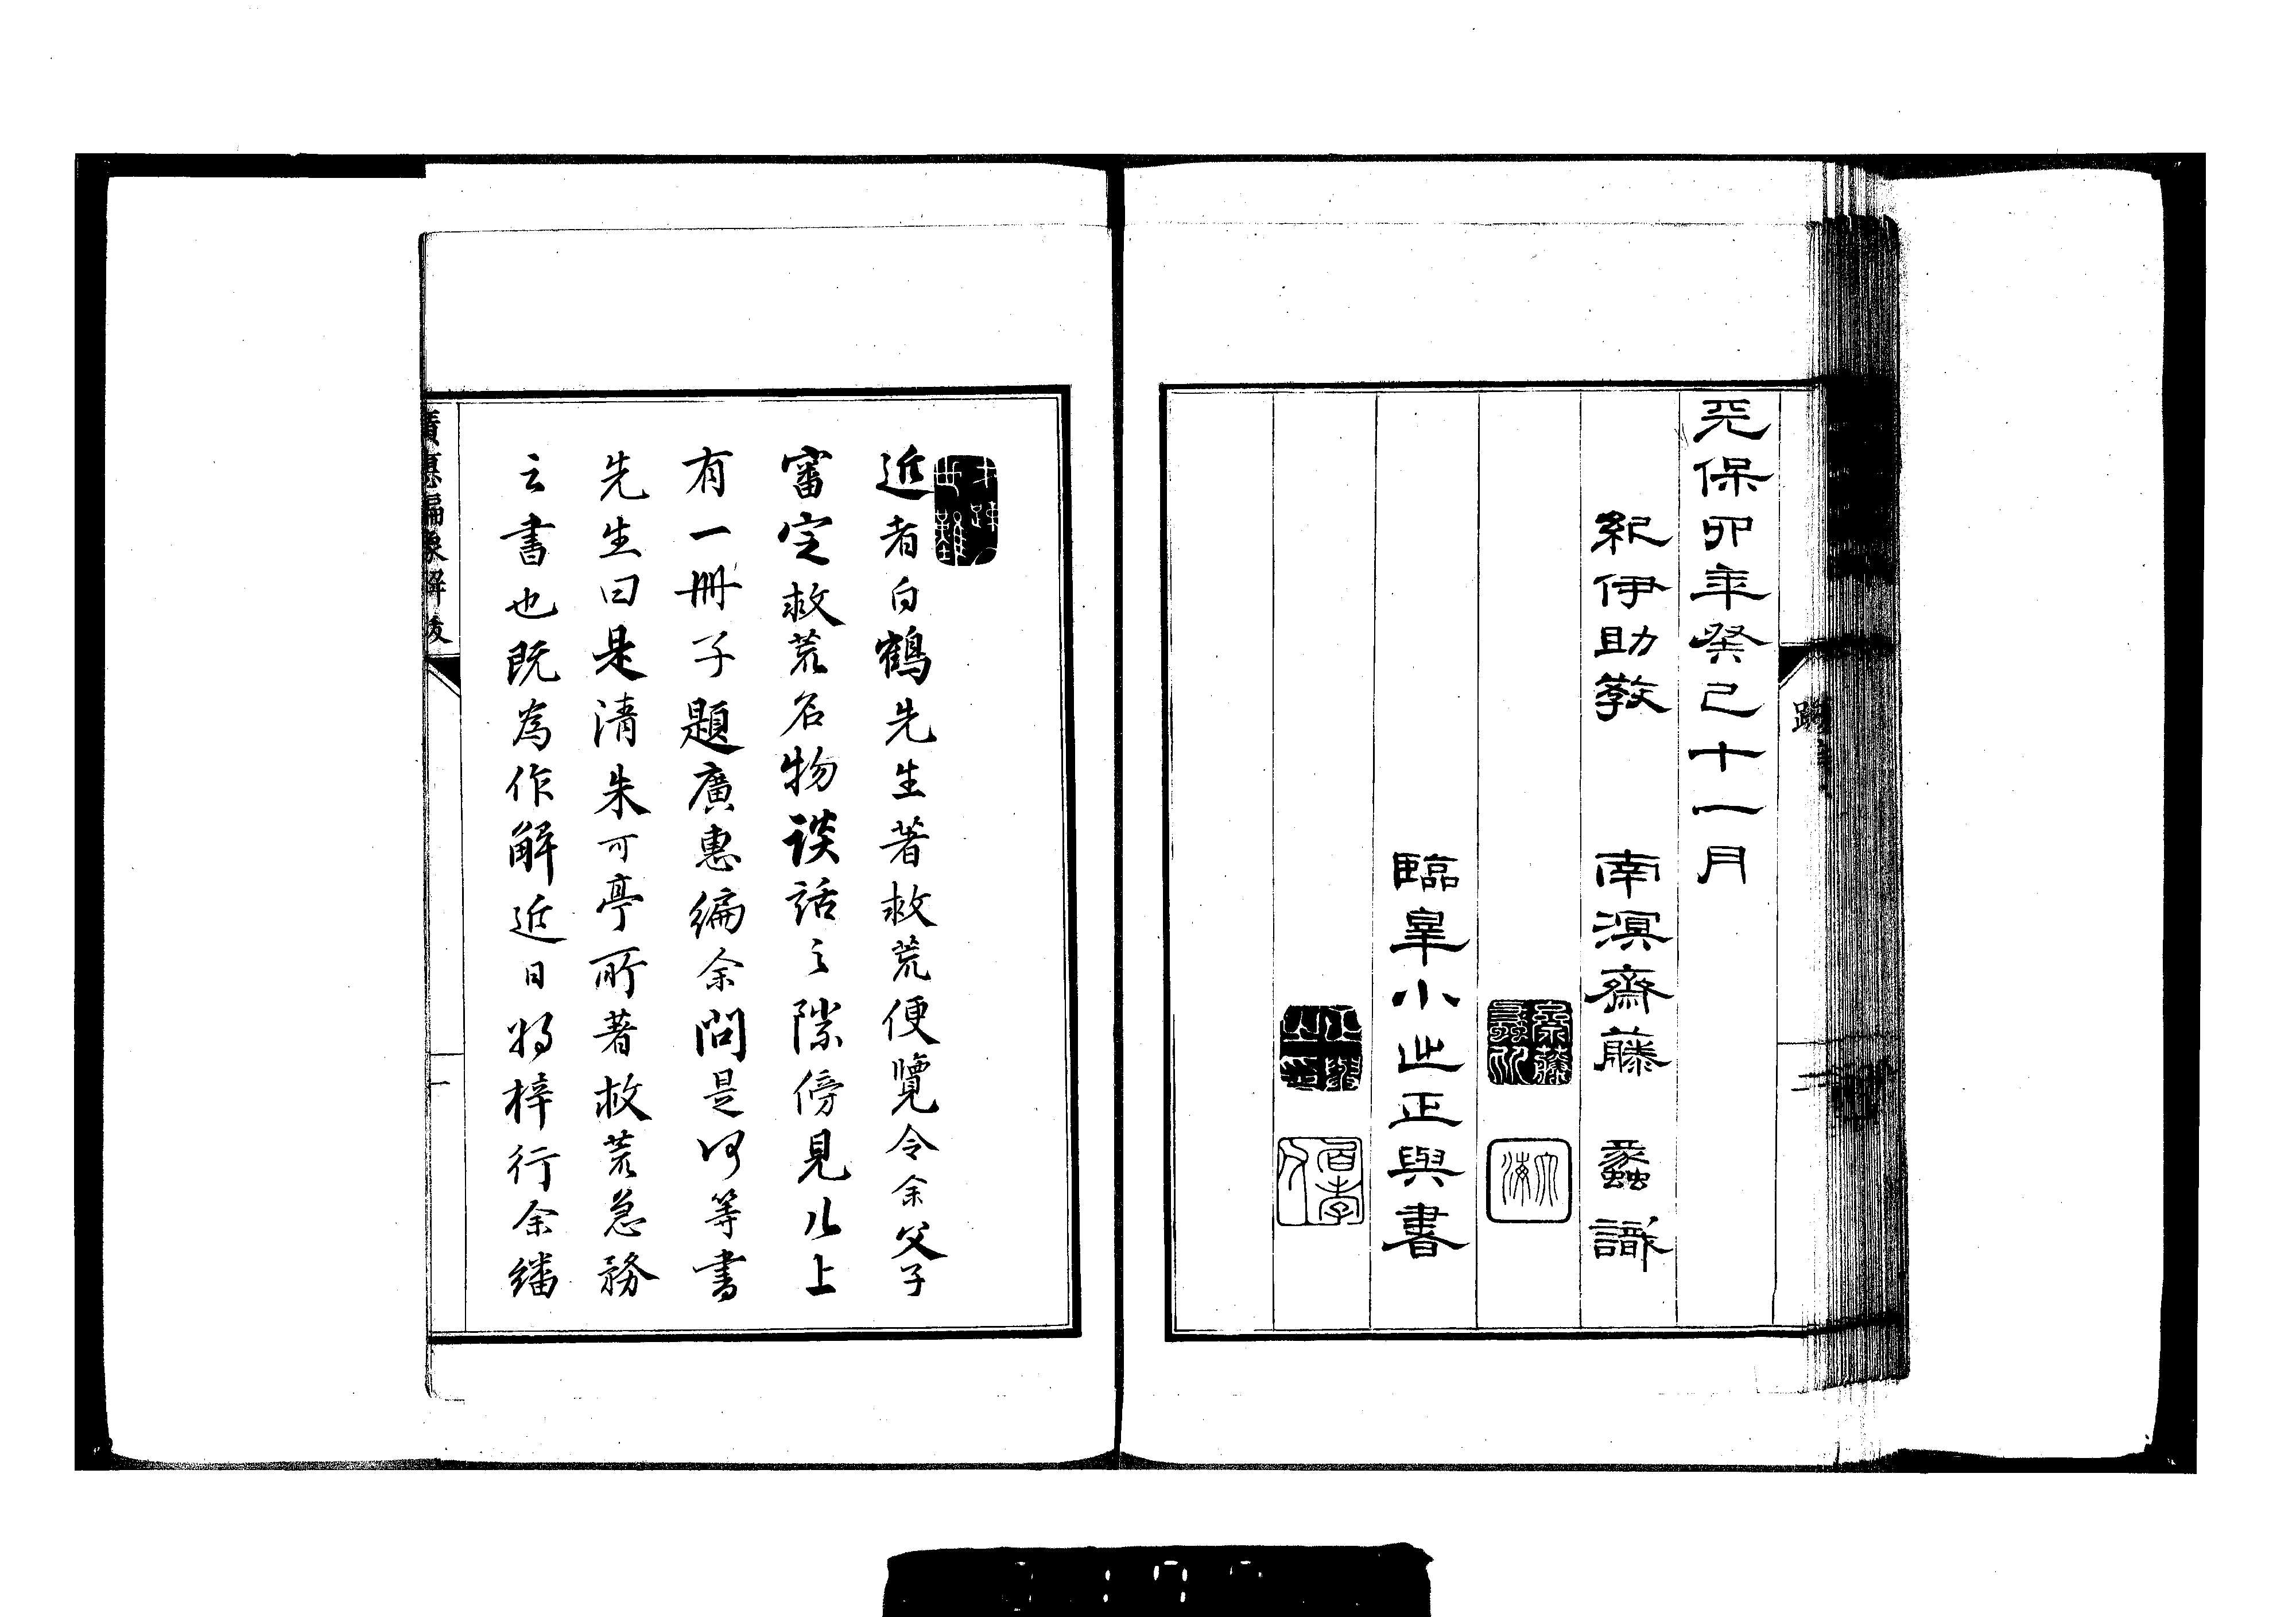 天保卯年癸巳十一月
紀伊助教　南溟齋藤　蠡識
臨皐小𣥂正興書
跋
近者白鶴先生著救荒便覽令余父子
審定救荒名物談話之隙傍見几上
有一冊子題廣惠編余問是何等書
先生曰是清朱可亭所著救荒急務
云書也既為作解近日將梓行余繙
廣惠編彖解跋
一